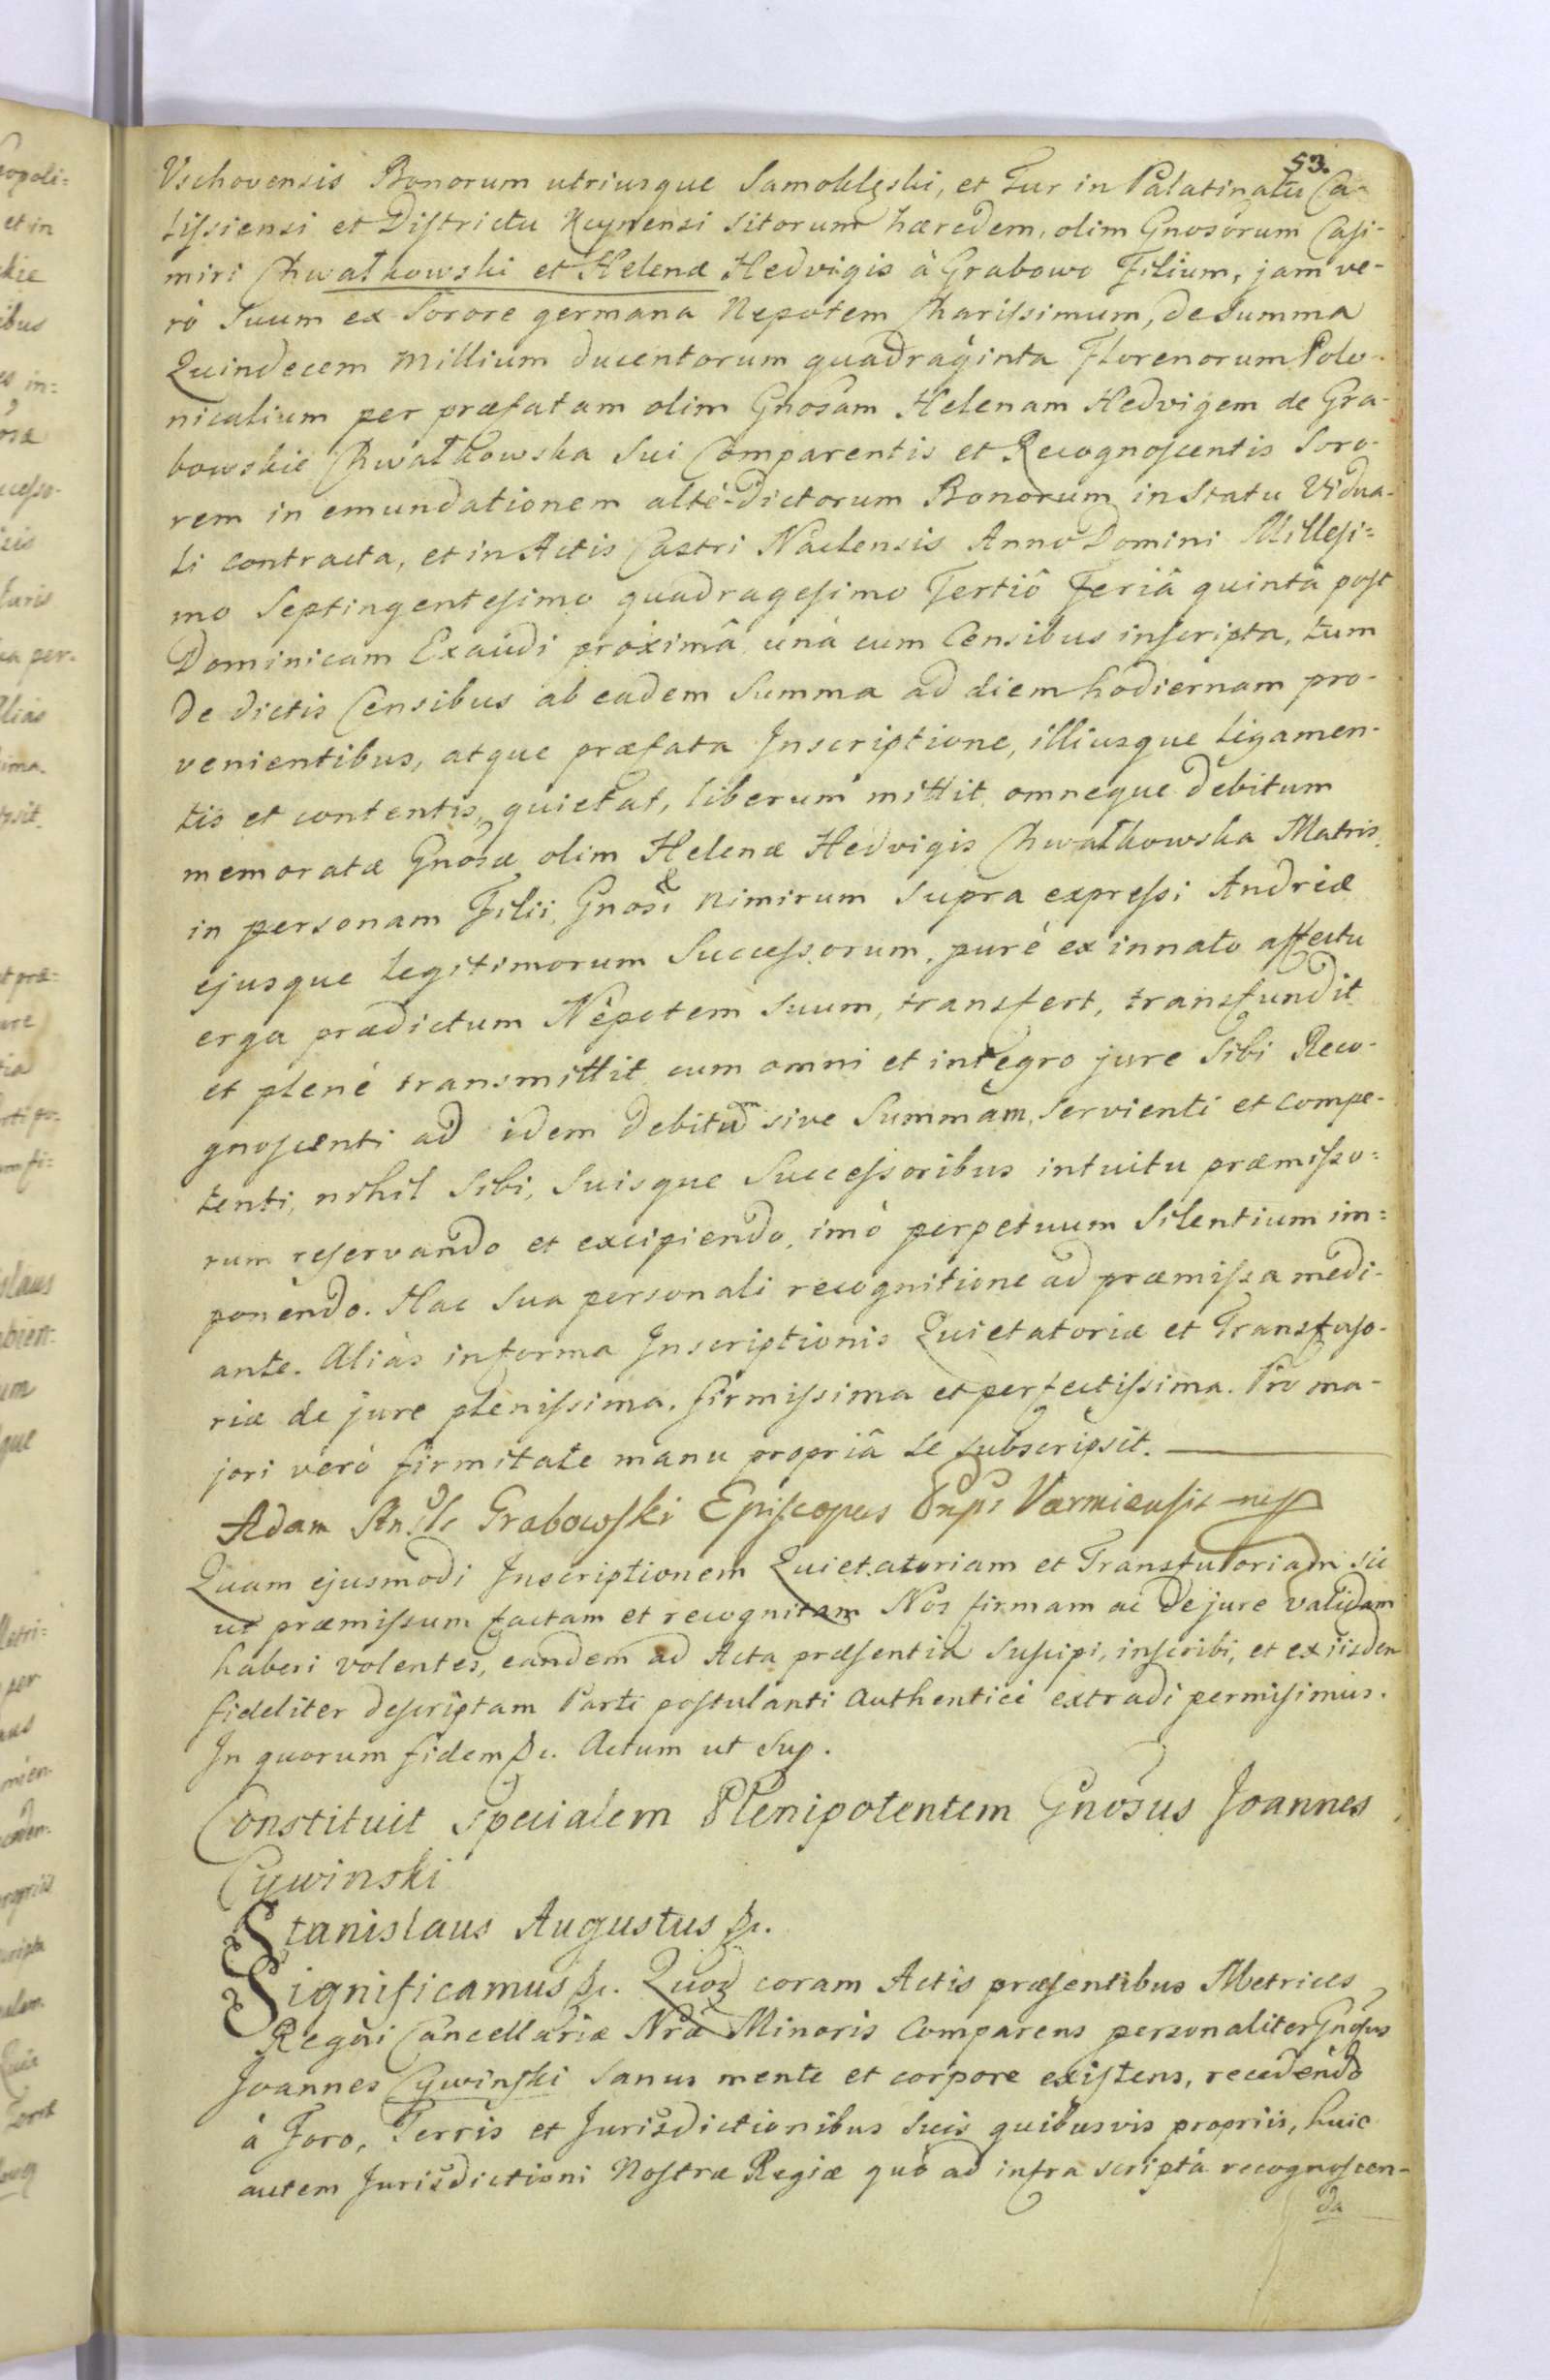 53.
Vschovensis Bonorum utriusque Samoklęski, et Tur in Palatinatu Ca-
lissiensi et Districtu Kcynensi sitorum hæredem, olim Gnosorum Casi-
miri Chwałkowski et Helenæ Hedvigis à Grabowo Filium, jam ve-
rò Suum ex Sorore germana Nepotem Charissimum, de Summa
Quindecem Millium ducentorum quadraginta Florenorum Polo-
nicalium per præfatam olim Gnosam Helenam Hedvigem de Gra-
bowskie Chwałkowska Sui Comparentis et Recognoscentis Soro-
rem in emundationem altè-dictorum Bonorum in Statu Vidua-
li contracta, et in Actis Castri Naclensis Anno Domini Millesi-
mo Septingentesimo quadragesimo Tertiô Feriâ quintâ post
Dominicam Exaudi proximâ unà cum Censibus inscripta, tum
de dictis Censibus ab eadem Summa ad diem hodiernam pro-
venientibus, atque præfata Inscriptione, illiusque ligamen-
tis et contentis, quietat, liberum mittit, omneque debitum
memoratæ Gnosæ olim Helenæ Hedvigis Chwałkowska Matris,
in personam Filii, Gnosi & nimirum supra expressi Andreæ
ejusque legitimorum Successorum, purè ex innato affectu
erga prædictum Nepotem suum, transfert, transfundit
et plenè transmittit, cum omni et integro jure Sibi Reco-
gnoscenti ad idem debitum sive Summam, servienti et compe-
tenti, nihil Sibi, Suisque Successoribus intuitu præmisso-
rum reservando et excipiendo, imò perpetuum Silentium im-
ponendo. Hac Sua personali recognitione ad præmissa medi-
ante. Aliàs in forma Inscriptionis Quietatoriæ et Transfuso-
riæ de jure plenissima, firmissima et perfectissima. Pro ma-
jori verò firmitate manu propriâ se subscripsit.
Adam Stnsls Grabowski Episcopus Pnps Varmiensis mp
Quam ejusmodi Inscriptionem Quietatoriam et Transfusoriam sic
ut præmissum factam et recognitam Nos firmam ac de jure validam
haberi volentes, eandem ad Acta præsentia suscipi, inscribi, et ex iisdem
fideliter descriptam Parti postulanti Authenticè extradi permisimus.
In quorum fidem &c. Actum ut Sup.
Constituit Specialem Plenipotentem Gnosus Joannes
Cywinski
Stanislaus Augustus &c.
Significamus &c. Quod coram Actis præsentibus Metrices
Regni Cancellariæ Nræ Minoris Comparens personaliter Gnosus
Joannes Cywinski sanus mente et corpore existens, recedendo
à Foro, Terris et Jurisdictionibus suis quibusvis propriis, huic
autem Jurisdictioni Nostræ Regiæ quò ad infra scripta recognoscen-
da